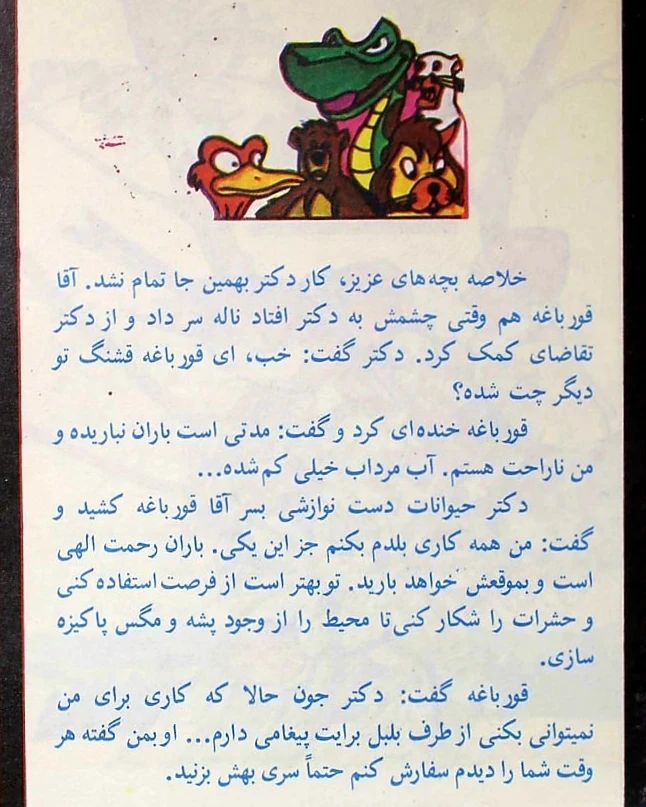 خلاصه بچه‌های عزیز، کار دکتر بهمین جا تمام نشد. آقا
قورباغه هم وقتی چشمش به دکتر افتاد ناله سر داد و از دکتر
تقاضای کمک کرد. دکتر گفت: خب، ای قورباغه قشنگ تو
دیگر چت شده؟
قورباغه خنده‌ای کرد و گفت: مدتی است باران نباریده و
من ناراحت هستم. آب مرداب خیلی کم شده...
دکتر حیوانات دست نوازشی بسر آقا قورباغه کشید و
گفت: من همه کاری بلدم بکنم جز این یکی. باران رحمت الهی
است و بموقعش خواهد بارید. تو بهتر است از فرصت استفاده کنی
و حشرات را شکار کنی تا محیط را از وجود پشه و مگس پاکیزه
سازی.
قورباغه گفت: دکتر جون حالا که کاری برای من
نمیتوانی بکنی از طرف بلبل برایت پیغامی دارم... او بمن گفته هر
وقت شما را دیدم سفارش کنم حتماً سری بهش بزنید.